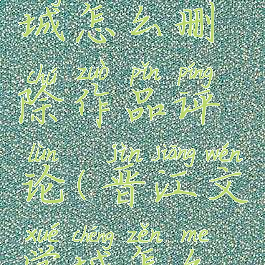 城怎么删
chú zuò pǐn píng
除作品评
lùn jìn jiāng wén
论(晋江文
xué chéng zěn me
学城怎么